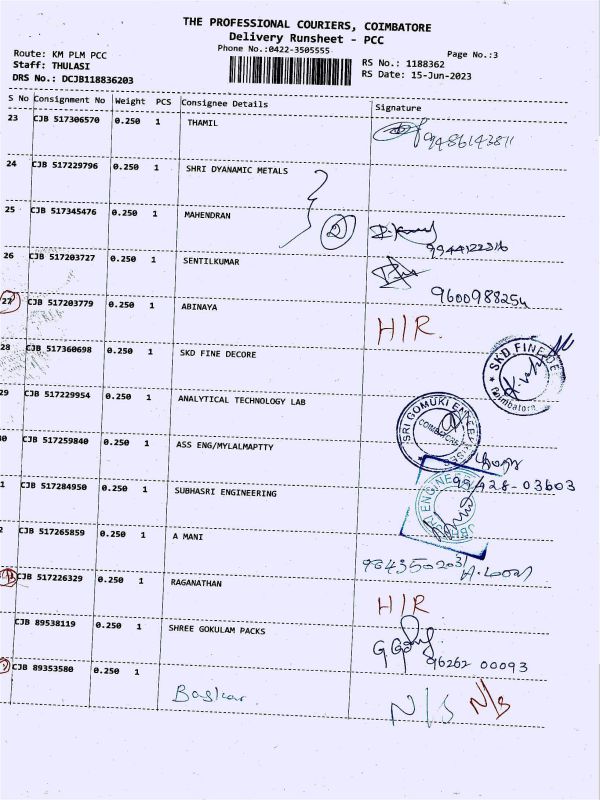 THE PROFESSIONAL COURIERS, COIMBATORE
Delivery Runsheet - PCC
Phone No.:0422-3505555
Page No.:3
Route: KM PLM PCC
Staff: THULASI
DRS No.: DCJB118836203
RS No.: 1188362
RS Date: 15-Jun-2023
S No Consignment No Weight PCS Consignee Details Signature
23 CJB 517306570 0.250 1 THAMIL
24 CJB 517229796 0.250 1 SHRI DYANAMIC METALS
25 CJB 517345476 0.250 1 MAHENDRAN
26 CJB 517203727 0.250 1 SENTILKUMAR
9600988254
27 CJB 517203779 0.250 1 ABINAYA H/R.
28 CJB 517360698 0.250 1 SKD FINE DECORE
SKD FINE DE
Coimbatore
29 CJB 517229954 0.250 1 ANALYTICAL TECHNOLOGY LAB
SRI GOMUKI
COIMBATORE
CJB 517259840 0.250 1 ASS ENG/MYLALMAPTTY
03603
1 CJB 517284950 0.250 1 SUBHASRI ENGINEERING
2 CJB 517265859 0.250 1 A MANI
CJB 517226329 0.250 1 RAGANATHAN H/R
CJB 89538119 0.250 1 SHREE GOKULAM PACKS
96262 00093
CJB 89353580 0.250 1 Baskar N/S N/S